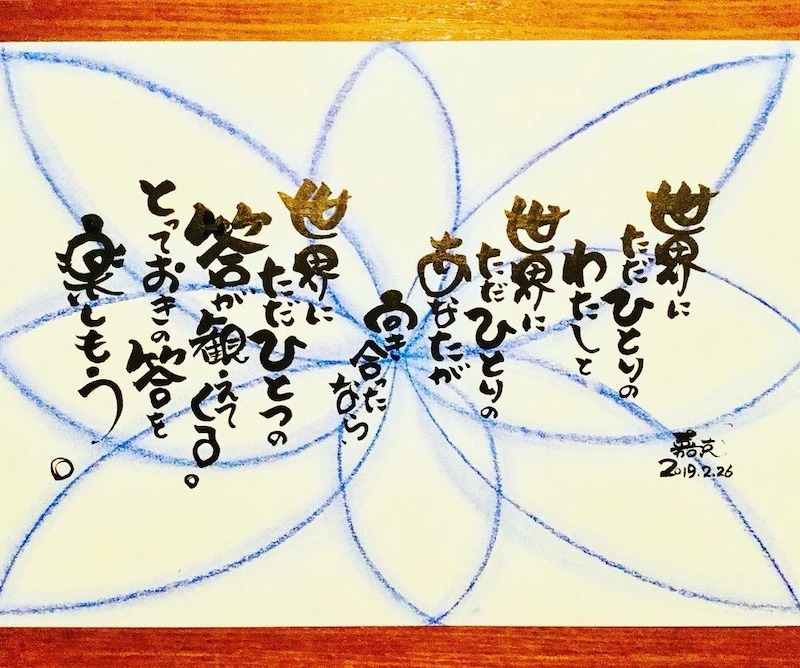 世界に
ただひとりの
わたしと
世界に
ただひとりの
あなたが
向き
合った
なら
世界に
ただひとつの
答が観えて
くる。
とっておきの答を
楽しもう。
2019.2.26